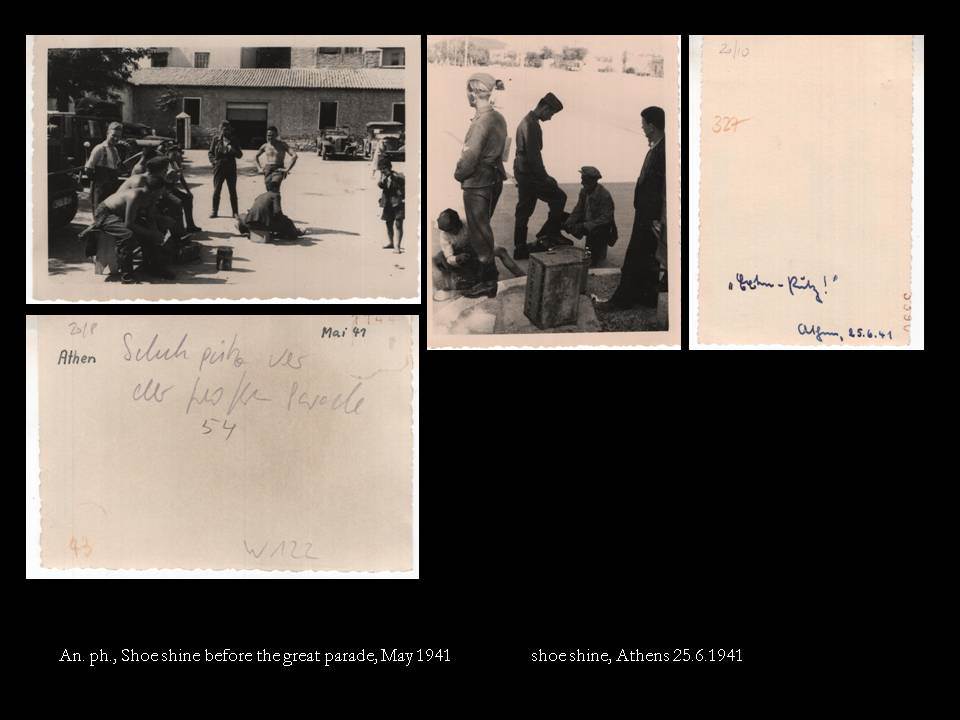 20/10
327
Athen, 25.6.41
20/8
Mai 41
Athen
Schuhputz vor
der großen Parade
54
43
W 122
An. ph., Shoe shine before the great parade, May 1941
shoe shine, Athens 25.6.1941